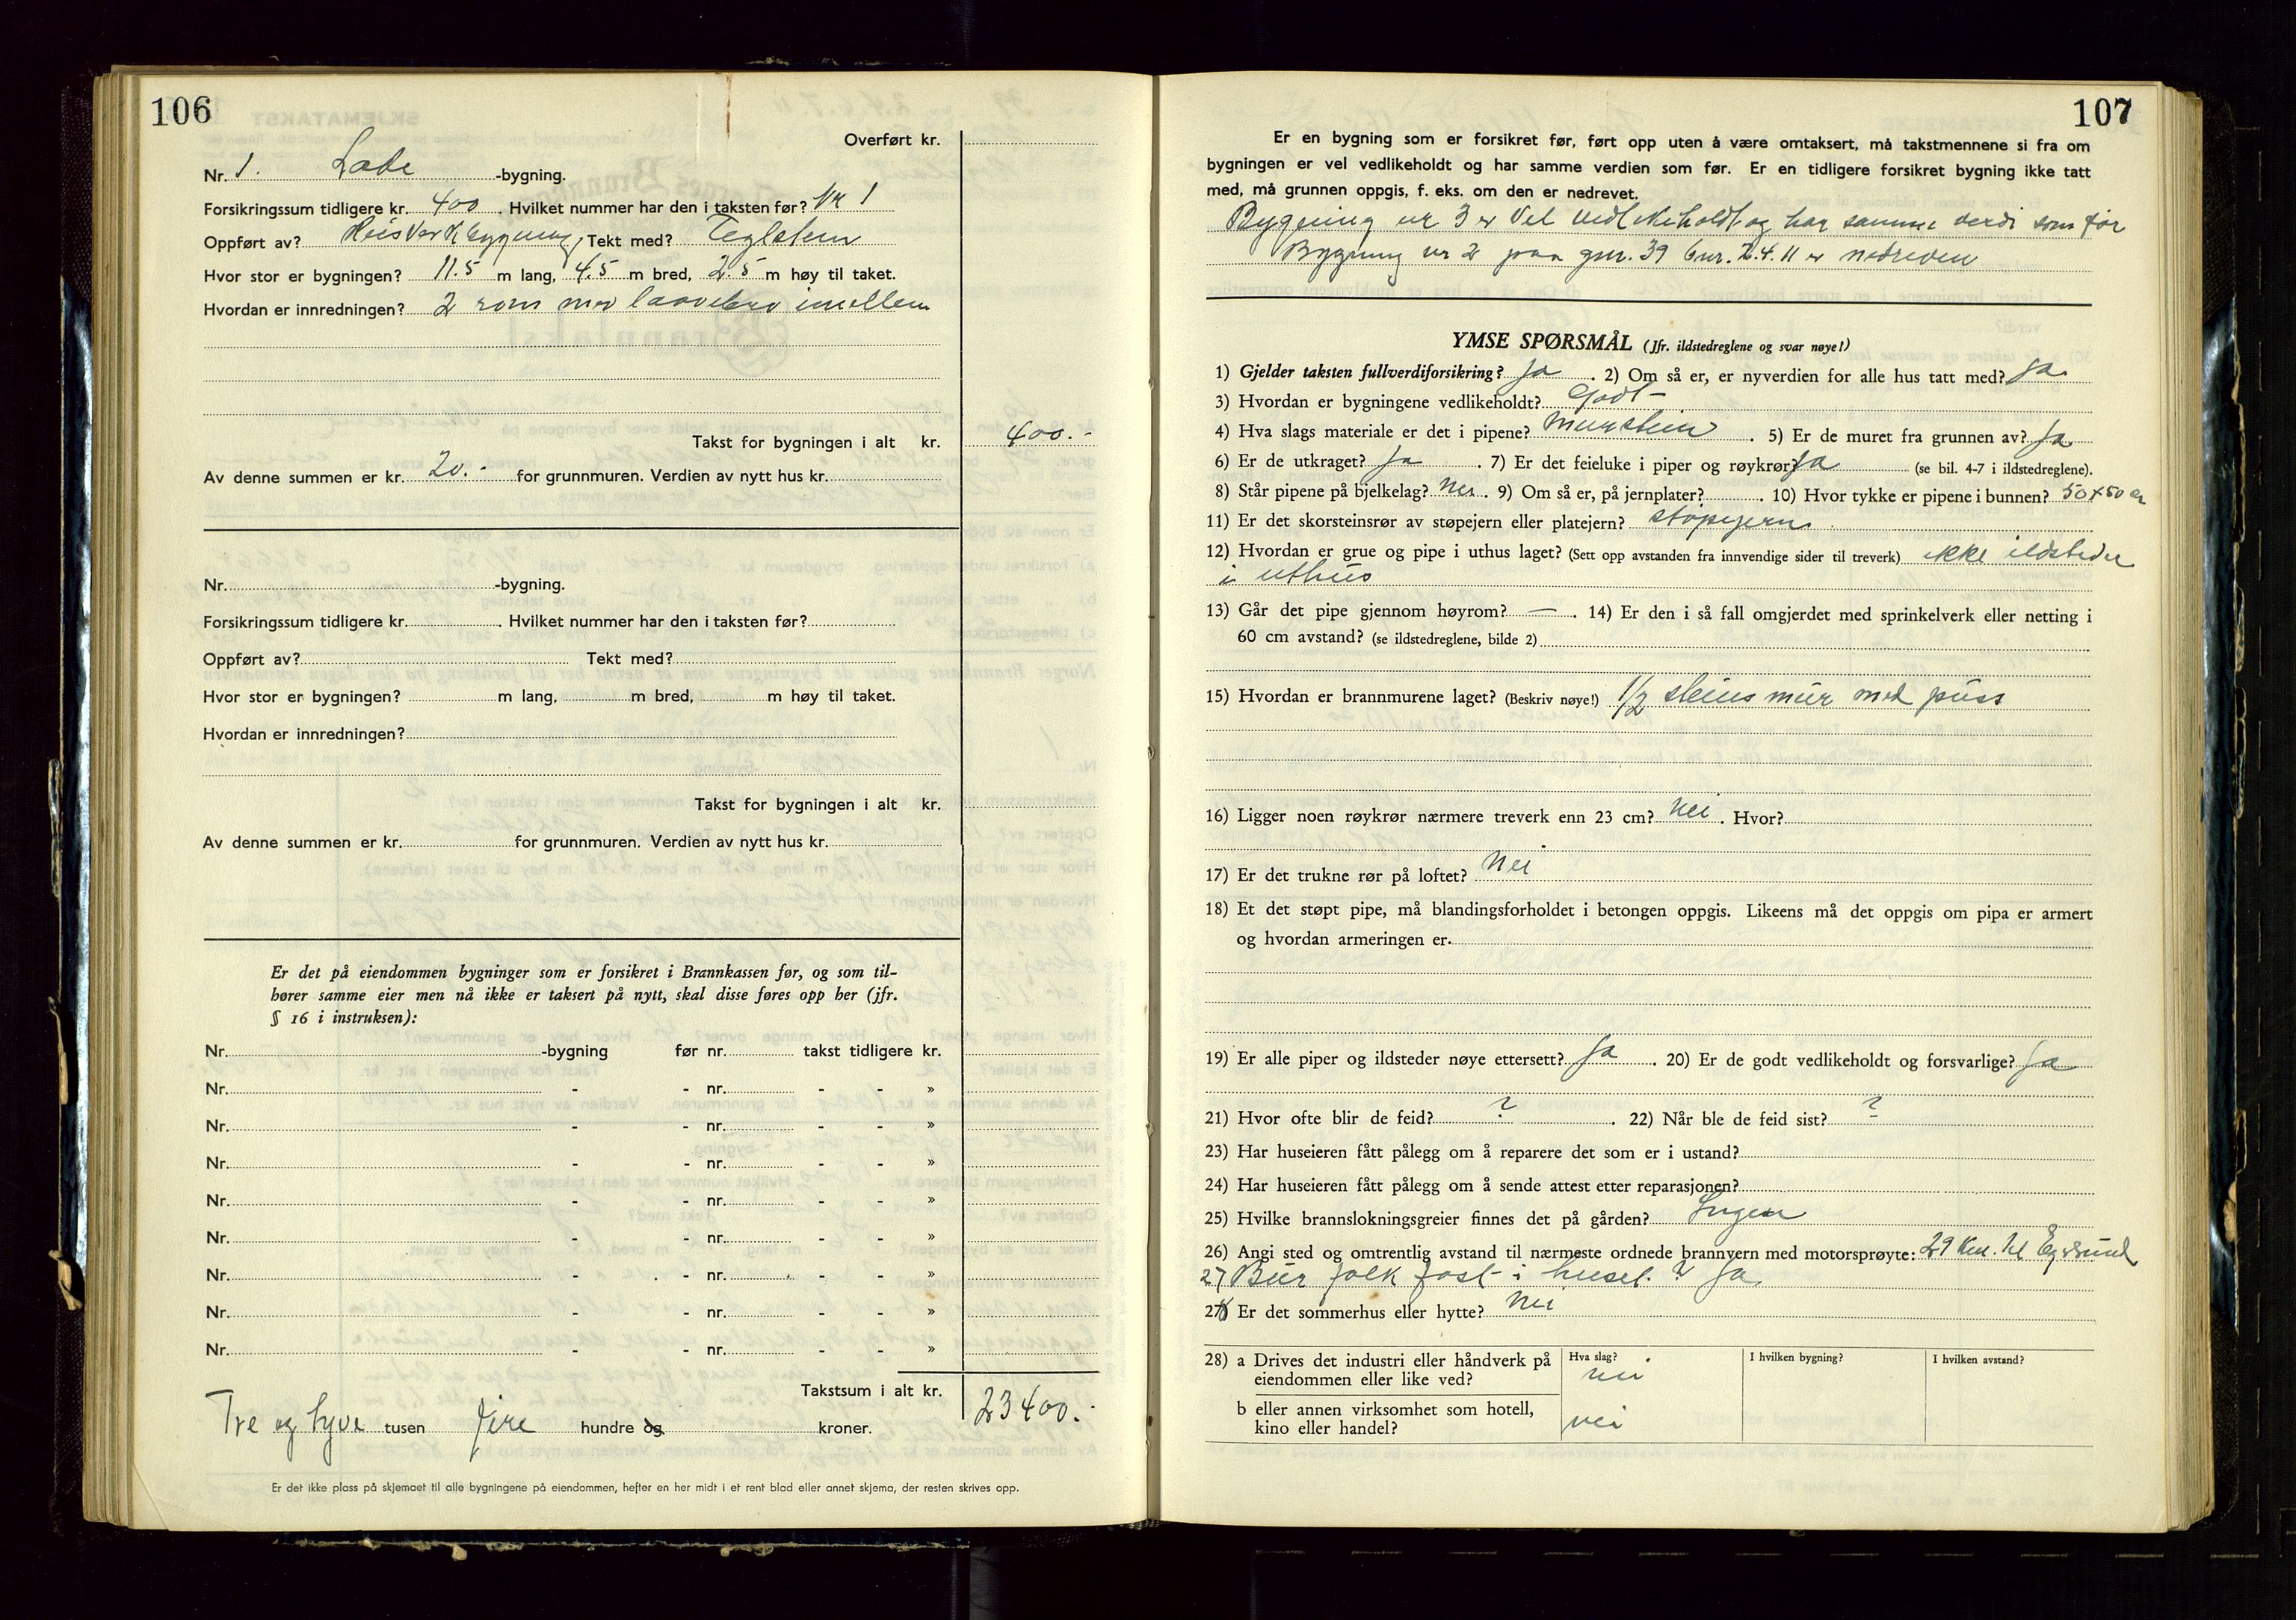 106
Overført kr.
Nr. 1. Løde -bygning.
Forsikringssum tidligere kr. 400 . Hvilket nummer har den i taksten før? Nr 1
Oppført av? Tekt med? Teglstein
Hvor stor er bygningen? 11.5 m lang, 4.5 m bred, 2.5 m høy til taket.
Hvordan er innredningen? 2 rom med imellem
Takst for bygningen i alt kr. 400.-
Av denne summen er kr. 20.- for grunnmuren. Verdien av nytt hus kr.
Nr. -bygning.
Forsikringssum tidligere kr. . Hvilket nummer har den i taksten før?
Oppført av? Tekt med?
Hvor stor er bygningen? m lang, m bred, m høy til taket.
Hvordan er innredningen?
Takst for bygningen i alt kr.
Av denne summen er kr. for grunnmuren. Verdien av nytt hus kr.
Er det på eiendommen bygninger som er forsikret i Brannkassen før, og som til-
hører samme eier men nå ikke er taksert på nytt, skal disse føres opp her (jfr.
§ 16 i instruksen):
Nr. -bygning før nr. takst tidligere kr.
Nr. - - nr. - - »
Nr. - - nr. - - »
Nr. - - nr. - - »
Nr. - - nr. - - »
Nr. - - nr. - - »
Nr. - - nr. - - »
Nr. - - nr. - - »
Nr. - - nr. - - »
Takstsum i alt kr. 23400.-
Tre og tyve tusen fire hundre og kroner.
Er det ikke plass på skjemaet til alle bygningene på eiendommen, hefter en her midt i et rent blad eller annet skjema, der resten skrives opp.
107
Er en bygning som er forsikret før, ført opp uten å være omtaksert, må takstmennene si fra om
bygningen er vel vedlikeholdt og har samme verdien som før. Er en tidligere forsikret bygning ikke tatt
med, må grunnen oppgis, f. eks. om den er nedrevet.
Bygning nr 3 er vel vedlikeholdt og har samme verdi som før
Bygning nr 2 paa gnr. 39 bnr. 2.4.11 er nedreven
YMSE SPØRSMÅL (Jfr. ildstedreglene og svar nøye!)
1) Gjelder taksten fullverdiforsikring? Ja . 2) Om så er, er nyverdien for alle hus tatt med? Ja.
3) Hvordan er bygningene vedlikeholdt? Godt
4) Hva slags materiale er det i pipene? Murstein . 5) Er de muret fra grunnen av? Ja
6) Er de utkraget? Ja . 7) Er det feieluke i piper og røykrør? Ja (se bil. 4-7 i ildstedreglene).
8) Står pipene på bjelkelag? Nei . 9) Om så er, på jernplater? . 10) Hvor tykke er pipene i bunnen? 50x50 cm
11) Er det skorsteinsrør av støpejern eller platejern? støpejern
12) Hvordan er grue og pipe i uthus laget? (Sett opp avstanden fra innvendige sider til treverk) ikke ildsteder
i uthus
13) Går det pipe gjennom høyrom? — . 14) Er den i så fall omgjerdet med sprinkelverk eller netting i
60 cm avstand? (se ildstedreglene, bilde 2)
15) Hvordan er brannmurene laget? (Beskriv nøye!) 1/2 steins mur med puss
16) Ligger noen røykrør nærmere treverk enn 23 cm? Nei . Hvor?
17) Er det trukne rør på loftet? Nei
18) Et det støpt pipe, må blandingsforholdet i betongen oppgis. Likeens må det oppgis om pipa er armert
og hvordan armeringen er.
19) Er alle piper og ildsteder nøye ettersett? Ja . 20) Er de godt vedlikeholdt og forsvarlige? Ja
21) Hvor ofte blir de feid? ? . 22) Når ble de feid sist? ?
23) Har huseieren fått pålegg om å reparere det som er i ustand?
24) Har huseieren fått pålegg om å sende attest etter reparasjonen?
25) Hvilke brannslokningsgreier finnes det på gården? Ingen
26) Angi sted og omtrentlig avstand til nærmeste ordnede brannvern med motorsprøyte: 29 Km. til Egersund
27) Bur folk fast i huset. ? Ja
27) Er det sommerhus eller hytte? Nei
28) a Drives det industri eller håndverk på Hva slag? I hvilken bygning? I hvilken avstand?
eiendommen eller like ved? nei
b eller annen virksomhet som hotell,
kino eller handel? nei